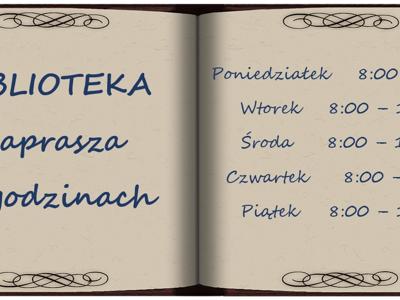 BLIOTEKA
aprasza
godzinach
Poniedziałek 8:00
Wtorek 8:00 – 1
Środa 8:00 – 1
Czwartek 8:00 –
Piątek 8:00 – 1